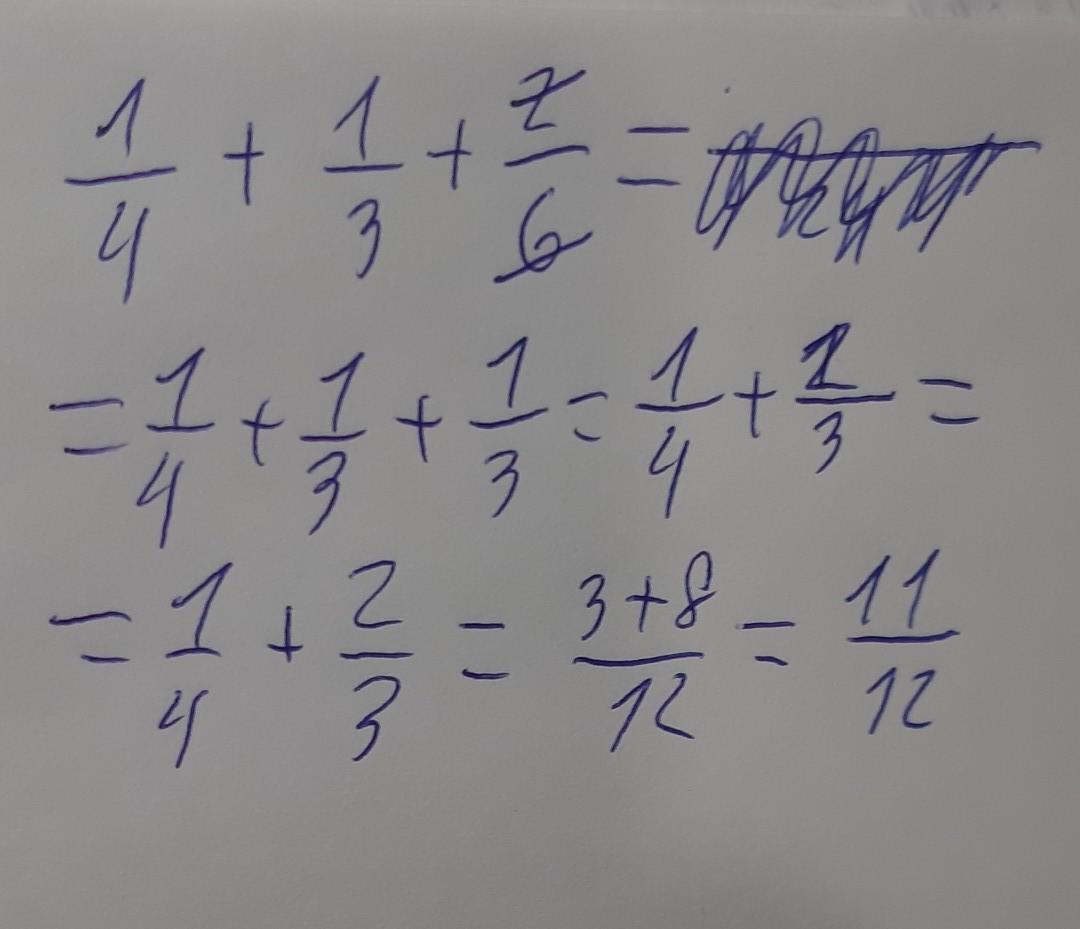 1/4 + 1/3 + 2/6 =
= 1/4 + 1/3 + 1/3 = 1/4 + 2/3 =
= 1/4 + 2/3 = 3+8/12 = 11/12